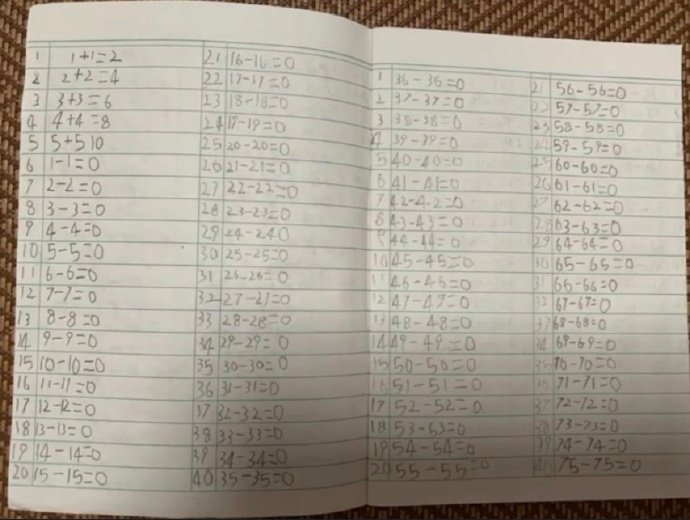 1 1+1=2
2 2+2=4
3 3+3=6
4 4+4=8
5 5+5 10
6 1-1=0
7 2-2=0
8 3-3=0
9 4-4=0
10 5-5=0
11 6-6=0
12 7-7=0
13 8-8=0
14 9-9=0
15 10-10=0
16 11-11=0
17 12-12=0
18 13-13=0
19 14-14=0
20 15-15=0
21 16-16=0
22 17-17=0
23 18-18=0
24 19-19=0
25 20-20=0
26 21-21=0
27 22-22=0
28 23-23=0
29 24-24 0
30 25-25=0
31 26-26=0
32 27-27=0
33 28-28=0
34 29-29=0
35 30-30=0
36 31-31=0
37 32-32=0
38 33-33=0
39 34-34=0
40 35-35=0
1 36-36=0
2 37-37=0
3 38-38=0
4 39-39=0
5 40-40=0
6 41-41=0
7 42-42=0
8 43-43=0
9 44-44=0
10 45-45=0
11 46-46=0
12 47-47=0
13 48-48=0
14 49-49=0
15 50-50=0
16 51-51=0
17 52-52=0
18 53-53=0
19 54-54=0
20 55-55=0
21 56-56=0
22 57-57=0
23 58-58=0
24 59-59=0
25 60-60=0
26 61-61=0
27 62-62=0
28 63-63=0
29 64-64=0
30 65-65=0
31 66-66=0
32 67-67=0
33 68-68=0
34 69-69=0
35 70-70=0
71-71=0
37 72-72=0
38 73-73=0
39 74-74=0
75-75=0